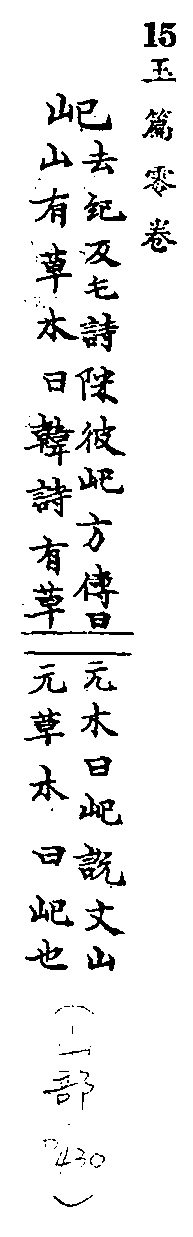 15 玉篇零卷
屺
去紀反毛詩陟彼屺方傳曰
山有草木曰韓詩有草
元木曰屺説文山
元草木曰屺也
(山部 P430)